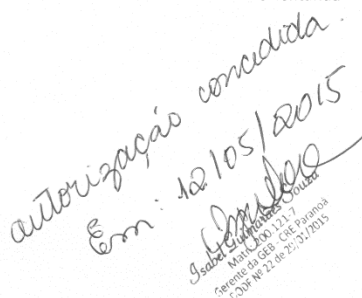 autorização concedida.
Em: 12/05/2015
Isabel Guimarães Souza
Matr. 200.121-7
Gerente da GEB - CRE Paranoá
DODF Nº 22 de 29/01/2015